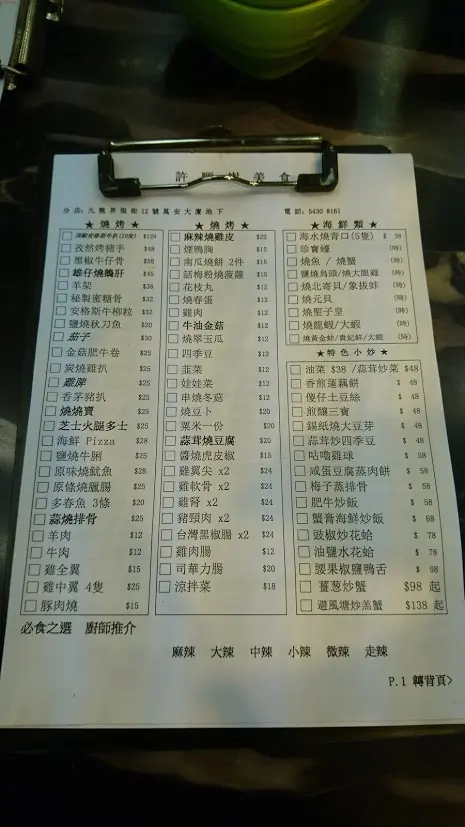 許 美食
分店:九龍界限街12號萬安大廈地下
電話:5430 8161
★ 燒烤 ★
$128
孜然烤豬手 $48
黑椒牛仔骨 $38
雄仔燒鵝肝 $45
羊架 $38
秘製蜜糖骨 $32
安格斯牛柳粒 $32
鹽燒秋刀魚 $20
茄子 $30
金菇肥牛卷 $25
炭燒雞扒 $25
雞脾 $25
香茅豬扒 $25
燒燒賣 $25
芝士火腿多士 $25
海鮮 Pizza $28
鹽燒牛脷 $25
原味燒魷魚 $28
原條燒臘腸 $25
多春魚 3條 $20
蒜燒排骨 $25
羊肉 $12
牛肉 $12
雞全翼 $15
雞中翼 4隻 $25
豚肉燒 $15
★ 燒烤 ★
麻辣燒雞皮 $22
煙鴨胸 $15
南瓜燒餅 2件 $15
話梅粉燒菠蘿 $15
花枝丸 $12
燒春蛋 $12
雞肉 $12
牛油金菇 $12
燒翠玉瓜 $12
四季豆 $12
韭菜 $12
娃娃菜 $12
串燒冬菇 $12
燒豆卜 $20
粟米一份 $20
蒜茸燒豆腐 $20
醬燒虎皮椒 $15
雞翼尖 x2 $24
雞軟骨 x2 $24
雞腎 x2 $24
豬頸肉 x2 $24
台灣黑椒腸 x2 $24
雞肉腸 $12
司華力腸 $20
涼拌菜 $18
★ 海鮮類 ★
海水燒青口(5隻) $ 38
珍寶蟶 (時)
燒魚 / 燒蟹 (時)
鹽燒烏頭/燒大眼雞 (時)
燒北寄貝/象拔蚌 (時)
燒元貝 (時)
燒聖子皇 (時)
燒龍蝦/大蝦 (時)
燒黃金蚌/貴妃蚌/大蝦 (時)
★特色小炒★
油菜 $38 /蒜茸炒菜 $48
香煎蓮藕餅 $ 48
傻仔土豆絲 $ 48
煎釀三寶 $ 48
錫紙燒大豆芽 $ 48
蒜茸炒四季豆 $ 48
咕嚕雞球 $ 58
咸蛋豆腐蒸肉餅 $ 58
梅子蒸排骨 $ 58
肥牛炒飯 $ 58
蟹膏海鮮炒飯 $ 68
豉椒炒花蛤 $ 78
油鹽水花蛤 $ 78
腰果椒鹽鴨舌 $ 98
薑葱炒蟹 $98 起
避風塘炒羔蟹 $138 起
必食之選 廚師推介
麻辣 大辣 中辣 小辣 微辣 走辣
P.1 轉背頁>